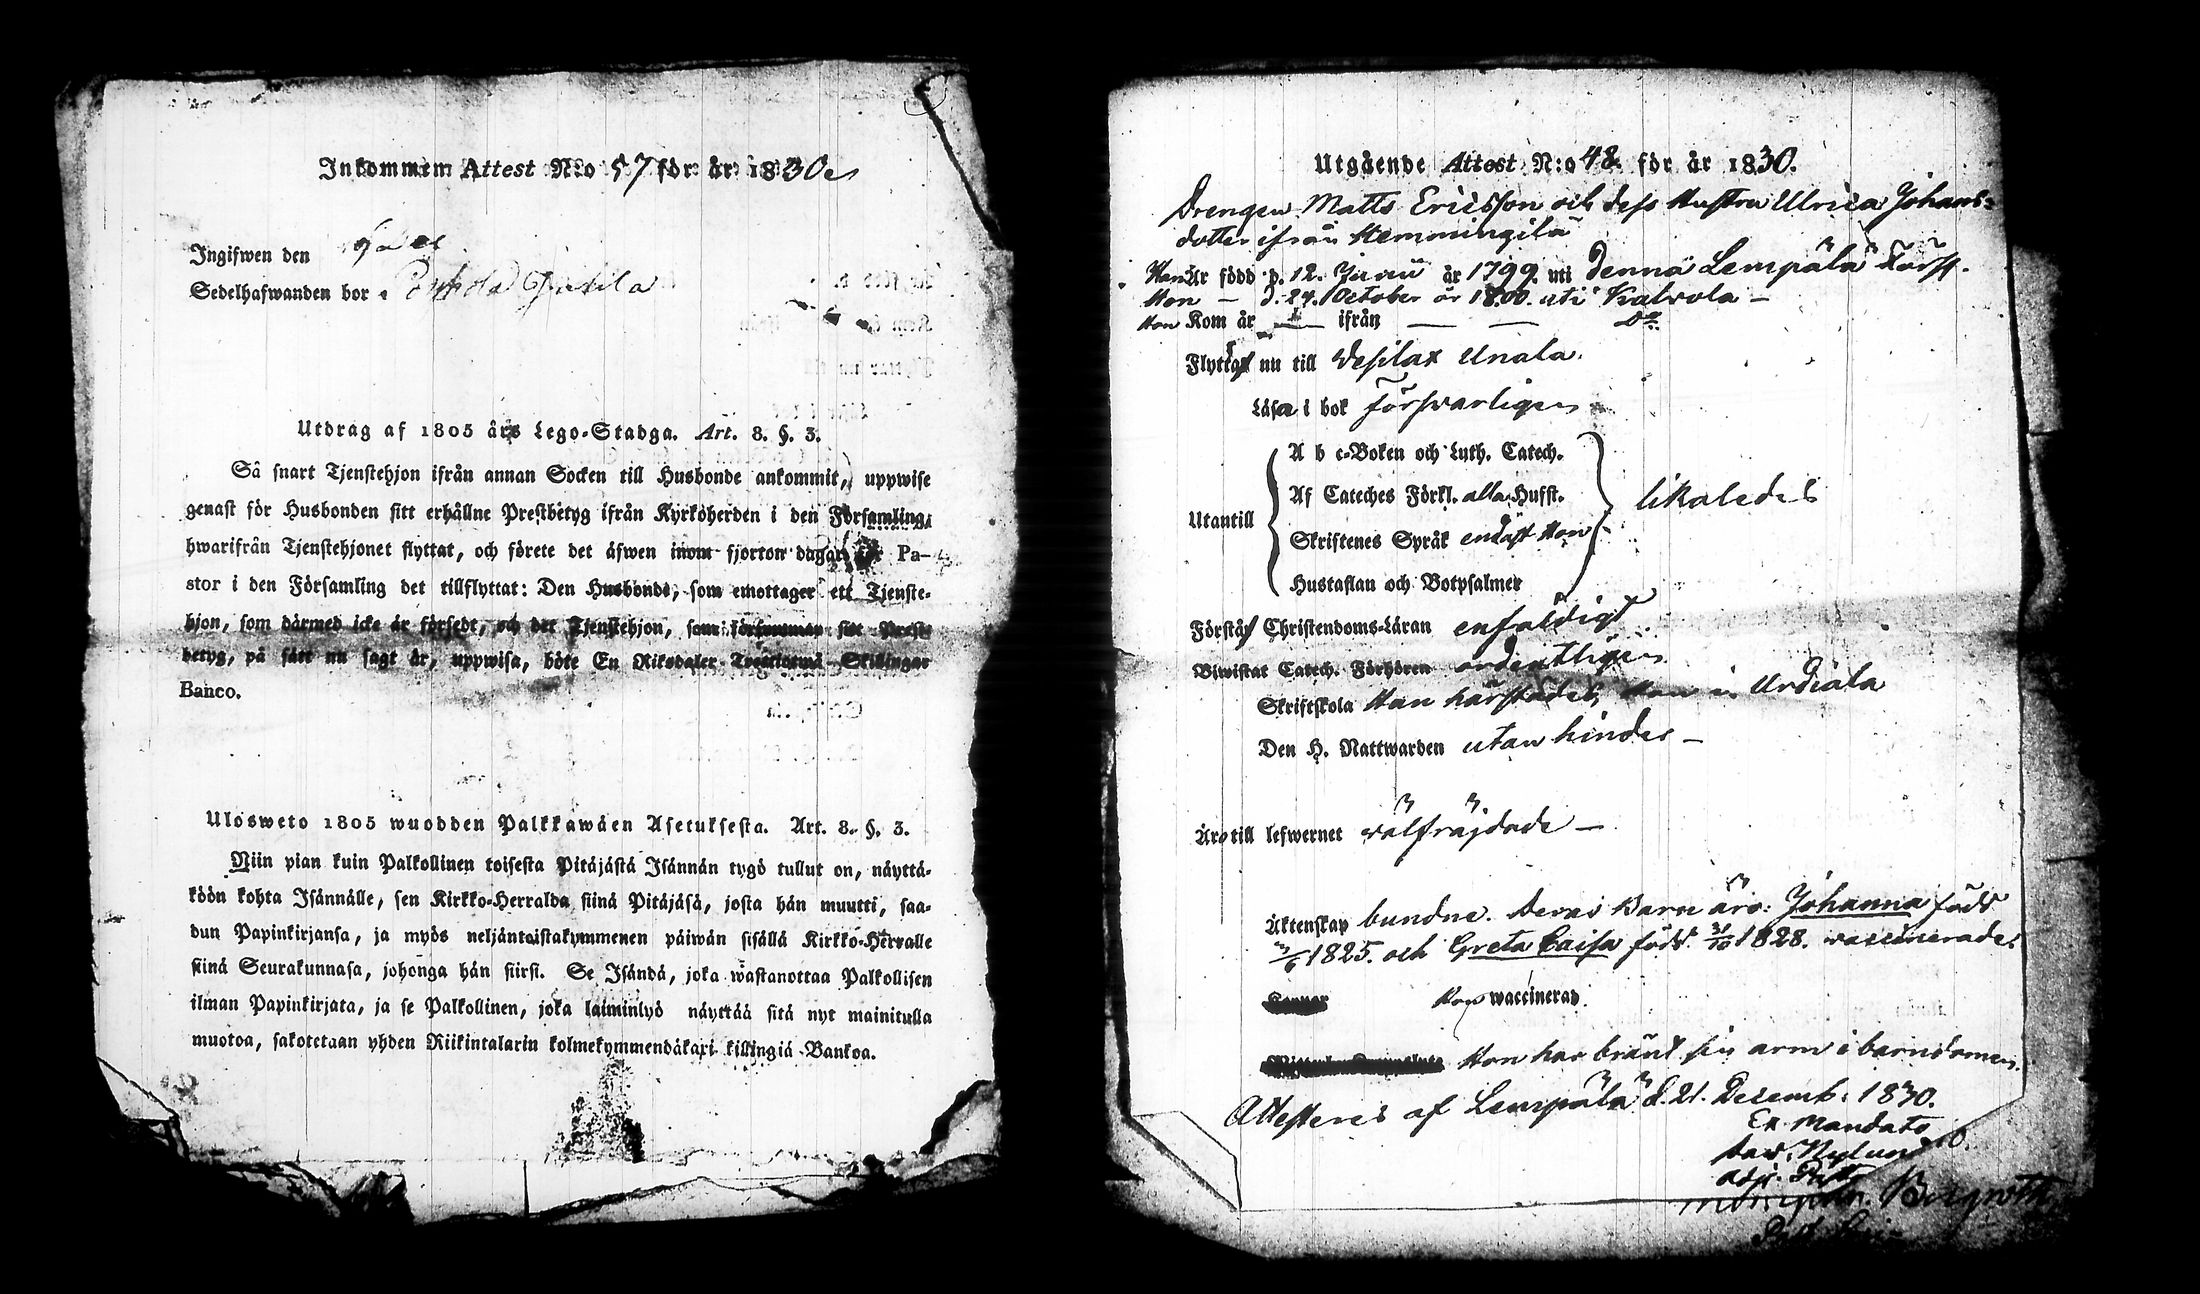 Inkommen Attest N:o 57 för år 1830
Ingifwen den
Sedelhafwanden bor
Utdrag af 1805 års Lego-Stadga. Art. 8. §. 3.
Så snart Tjenstehjon ifrån annan Socken till Husbonde ankommit, uppwise
genast för Husbonden sitt erhållne Prestbetyg ifrån Kyrkoherden i den Församling,
hwarifrån Tjenstehjonet flyttat, och förete det äfwen inom fjorton dagar för Pa-
stor i den Församling det tillflyttat: Den Husbonde, som emottager ett Tjenste-
hjon, som dårmed icke år försedt, och det Tjenstehjon, som försummar sitt Prest-
betyg, på sått nu sagt år, uppwisa, böte En Riksdaler Trettiotwå Skillingar
Banco.
Ulosweto 1805 wuodden Palkkawäen Asetuksesta. Art. 8. §. 3.
Niin pian kuin Palkollinen toisesta Pitäjästä Isännän tygö tullut on, näyttä-
köön kohta Isännälle, sen Kirkko-Herralda siinä Pitäjäsä, josta hän muutti, saa-
dun Papinkirjansa, ja myös neljäntoistakymmenen päiwän sisällä Kirkko-Herralle
siinä Seurakunnasa, johonga hän siirsi. Se Isändä, joka wastanottaa Palkollisen
ilman Papinkirjata, ja se Palkollinen, joka laiminlyö näyttää sitä nyt mainitulla
muotoa, sakotetaan yhden Riikintalarin kolmekymmendäkaxi killingiä Bankoa.
Utgående Attest N:o 48. för år 1830.
Drengen Matts Ericsson och dess Hustru Ulrica Johans-
dotter ifrån Hemmingilä
Han Är född d. 12. Junii år 1799. uti denna Lempälä Förs.
Hon — d. 24. October år 1800. uti Kalvola —
Hon Kom år — ifrån — — Do.
Flytta nu till Wesilax Unala.
Läsa i bok försvarligen
A b c-Boken och Luth. Catech.
Af Cateches Förkl. alla Hufst.
Utantill
likaledes
Skriftenes Språk endast Hon
Hustaflan och Botpsalmer
Förstå Christendoms-Läran enfaldigt
Biwistat Catech. Förhören ordentligen
Skriftskola Han härstädes, Hon i Urdiala
Den H. Nattwarden utan hinder —
Äro till lefwernet välfräjdade —
Äktenskap bundne. Deras Barn äro: Johanna född
3/6 1825. och Greta Caisa född 31/10 1828. vaccinerade.
Hon waccinerad.
Hon har bränt sin arm i barndomen.
Attesteres af Lempälä d. 21. Decemb. 1830.
Ex Mandato